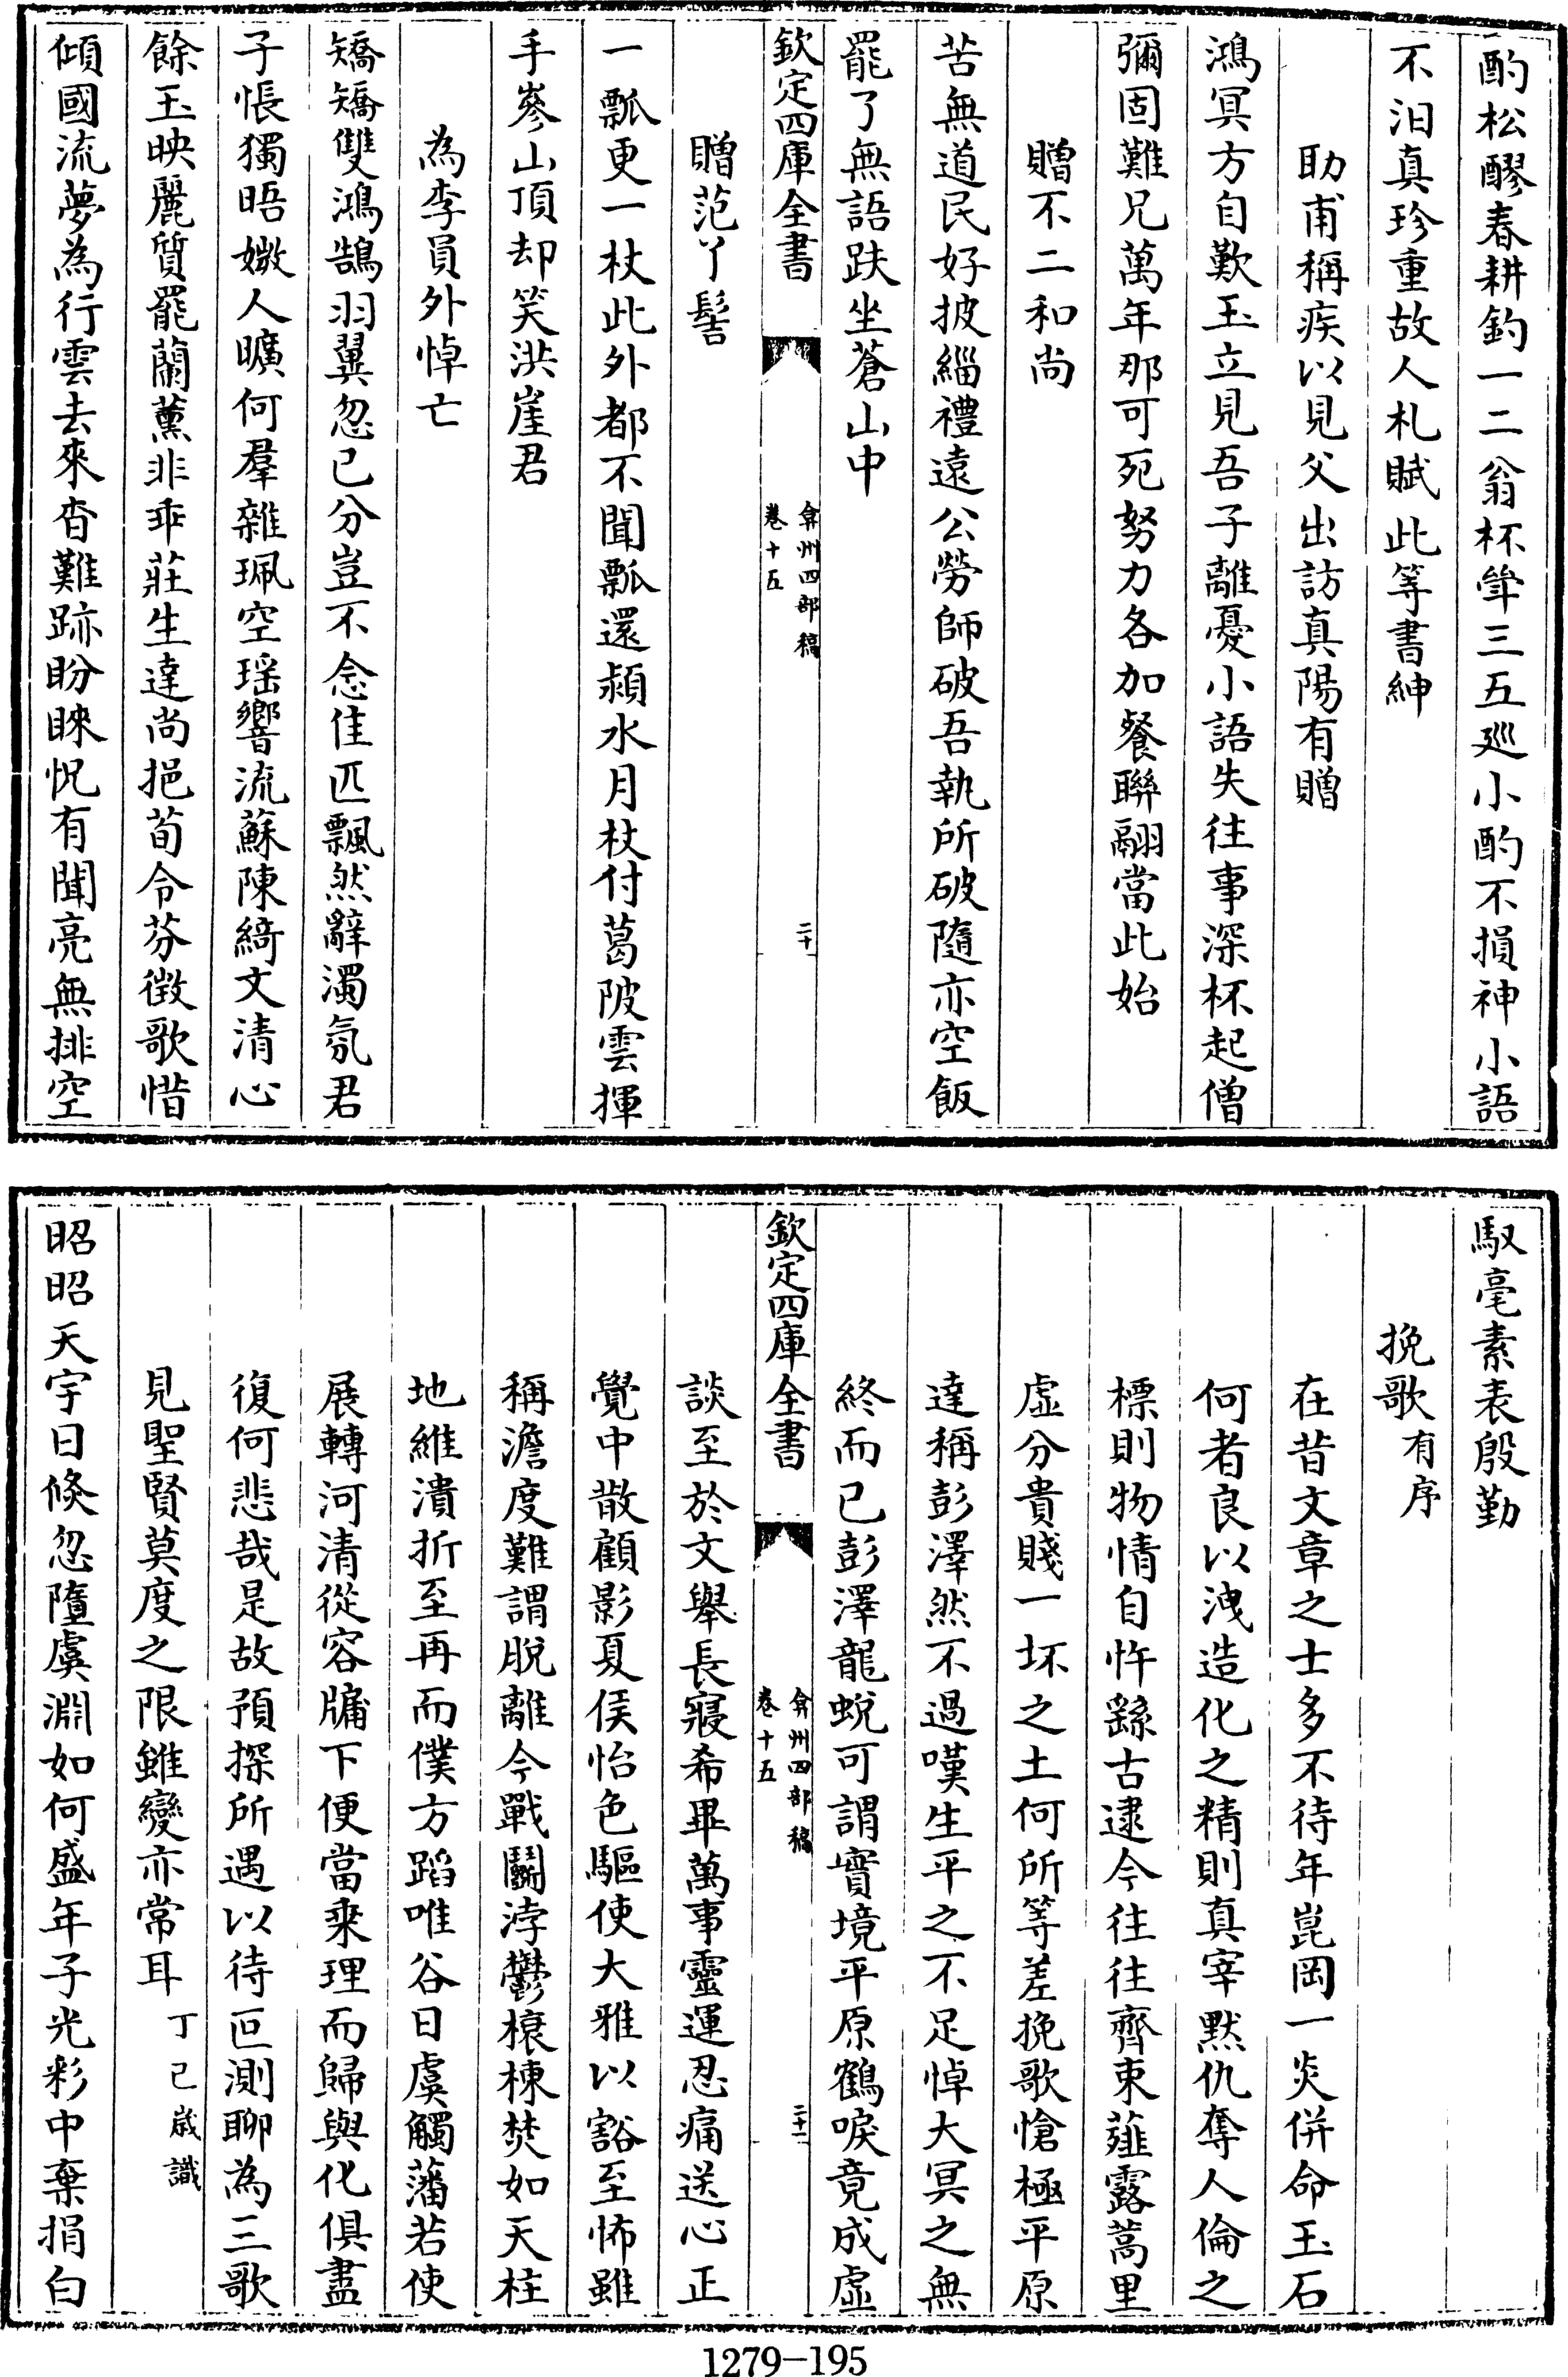 酌松醪春耕釣一二翁杯斝三五廵小酌不損神小語
不汨真珍重故人札賦此等書紳
助甫稱疾以見父出訪真陽有贈
鴻冥方自歎玉立見吾子離憂小語失往事深杯起僧
彌固難兄萬年那可死努力各加餐聯翮當此始
贈不二和尚
苦無道民好披緇禮遠公勞師破吾執所破隨亦空飯
罷了無語趺坐蒼山中
欽定四庫全書
弇州四部稿
卷十五
二十
贈范丫髻
一瓢更一杖此外都不聞瓢還潁水月杖付葛陂雲揮
手岑山頂却笑洪崖君
為李員外悼亡
矯矯雙鴻鵠羽翼忽已分豈不念佳匹飄然辭濁氛君
子悵獨晤媺人曠何羣雜珮空瑶響流蘇陳綺文清心
餘玉映麗質罷蘭薫非乖莊生達尚挹荀令芬徴歌惜
傾國流夢為行雲去來杳難跡盼睞怳有聞亮無排空
馭毫素表殷勤
挽歌有序
在昔文章之士多不待年崑岡一炎併命玉石
何者良以洩造化之精則真宰黙仇奪人倫之
標則物情自忤繇古逮今往往齊東薤露蒿里
虛分貴賤一坏之土何所等差挽歌愴極平原
達稱彭澤然不過嘆生平之不足悼大冥之無
終而已彭澤龍蛻可謂實境平原鶴唳竟成虛
欽定四庫全書
弇州四部稿
卷十五
二十一
談至於文舉長寢希畢萬事靈運忍痛送心正
覺中散顧影夏侯怡色驅使大雅以豁至怖雖
稱澹度難謂脫離今戰鬭浡鬱榱棟焚如天柱
地維潰折至再而僕方蹈唯谷日虞觸藩若使
展轉河清從容牖下便當乘理而歸與化俱盡
復何悲哉是故預探所遇以待叵測聊為三歌
見聖賢莫度之限雖變亦常耳丁巳歲識
昭昭天宇日倐忽墮虞淵如何盛年子光彩中棄捐白
1279-195